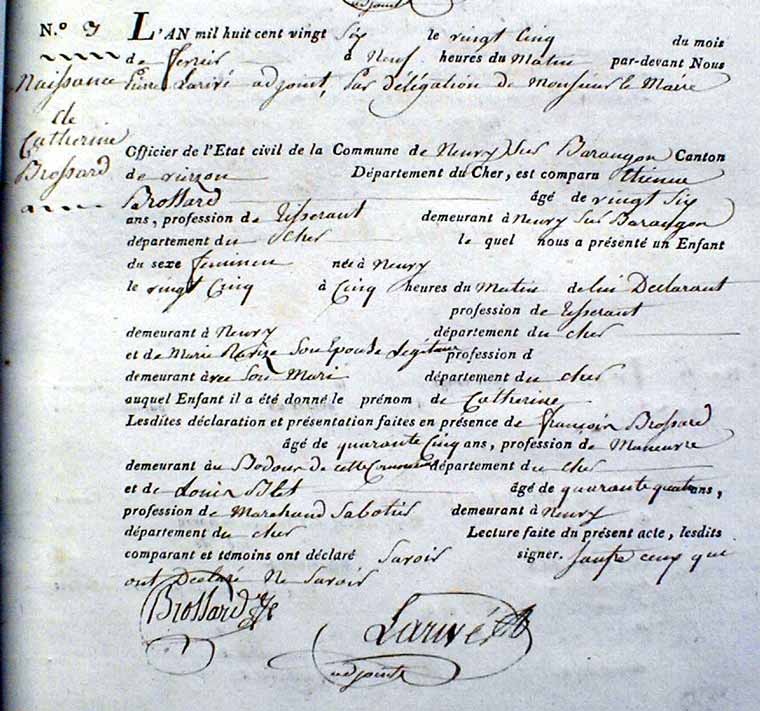 adjoint
N.º 7 L'AN mil huit cent vingt Six le vingt Cinq du mois
de fevrier à Neuf heures du Matin par-devant Nous
Pierre Larivé adjoint, par délégation de Monsieur le Maire
Naissance
de
Catherine
Brossard
Officier de l'Etat civil de la Commune de Neuvy Sur Barangon Canton
de vierzon Département du Cher, est comparu Etienne
Brossard âgé de vingt Six
ans, profession de tisserant demeurant à Neuvy Sur Barangon
département du Cher le quel nous a présenté un Enfant
du sexe feminin née à Neuvy
le vingt Cinq à Cinq heures du Matin de lui Declarant
profession de tisserant
demeurant à Neuvy département du cher
et de Marie Son Epouse Legitime profession d
demeurant avec Son Mari département du cher
auquel Enfant il a été donné le prénom de Catherine
Lesdites déclaration et présentation faites en présence de françois Brossard
âgé de quarante Cinq ans, profession de Maneuvre
demeurant au de cette Commune département du cher
et de Louis âgé de quarante quatre ans,
profession de Marchand Sabotié demeurant à Neuvy
département du cher Lecture faite du présent acte, lesdits
comparant et témoins ont déclaré Savoir signer. Saufre ceux qui
ont Déclaré Ne Savoir
Brossard
Larivé
adjoint